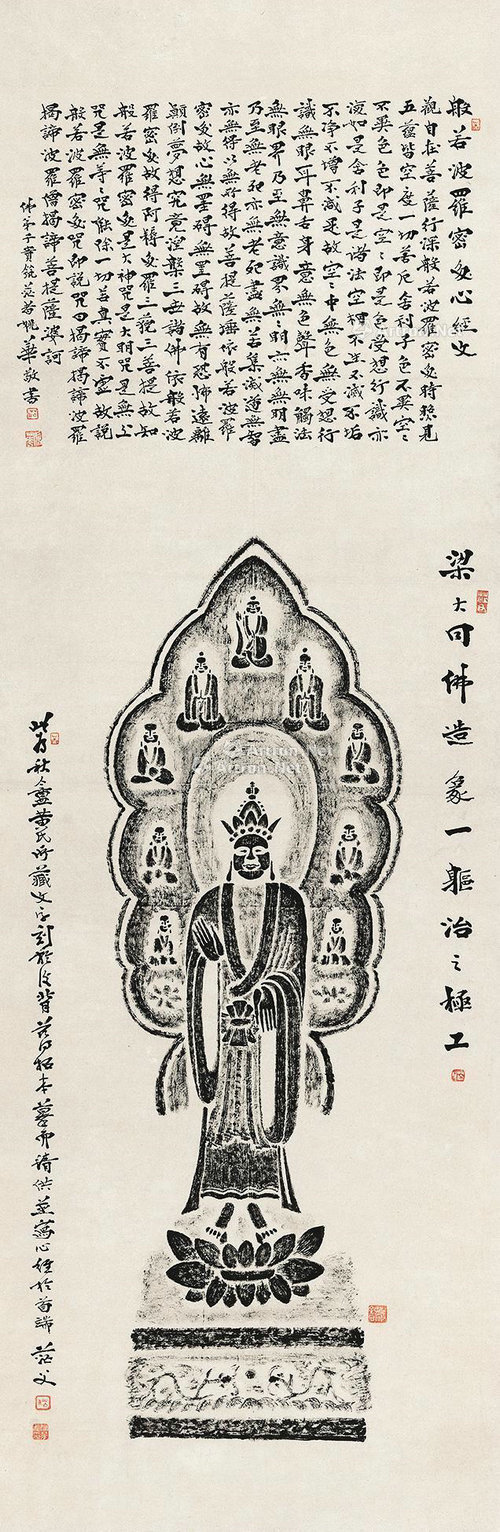 般若波羅密多心經文
觀自在菩薩行深般若波羅密多時照見
五蘊皆空度一切苦厄舍利子色不異空々
不異色色即是空々即是色受想行識亦
復如是舍利子是諸法空相不生不滅不垢
不淨不增不減是故空々中無色無受想行
識無眼耳鼻舌身意無色聲香味觸法
無眼界乃至無意識界無無明亦無無明盡
乃至無老死亦無老死盡無苦集滅道無智
亦無得以無所得故菩提薩埵依般若波羅
密多故心無罣礙無罣礙故無有恐怖遠離
顛倒夢想究竟涅槃三世諸佛依般若波
羅密多故得阿耨多羅三藐三菩提故知
般若波羅密多是大神咒是大明咒是無上
咒是無等々咒能除一切苦真實不空故說
般若波羅密多咒即說咒曰揭諦揭諦波羅
揭諦波羅僧揭諦菩薩婆訶
佛弟子貴筑姚華敬書
梁大同佛造象一軀治之極工
此為秋盦黃氏所藏文字刻於後背舊得拓本摹而清供並寫心經於首端 茫父
Artron.Net
Artron.Net